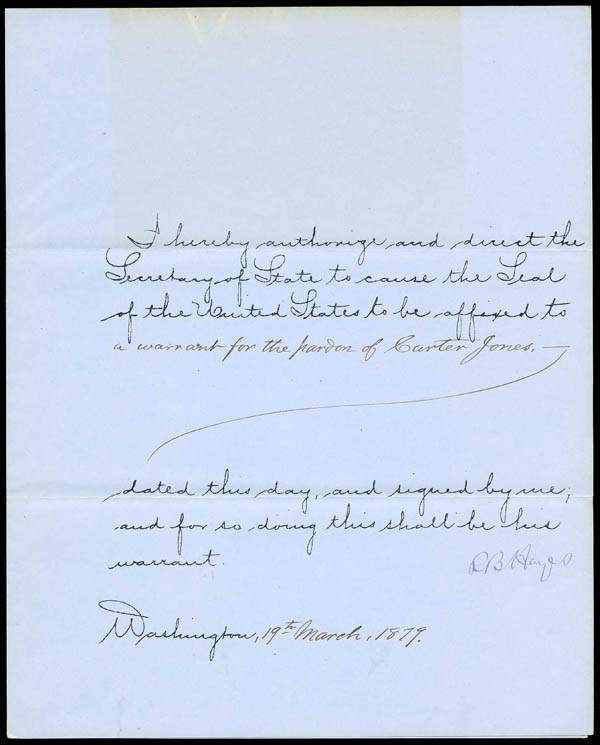 I hereby authorize and direct the
Secretary of State to cause the Seal
of the United States to be affixed to
a warrant for the pardon of Carter Jones. —
dated this day, and signed by me;
and for so doing this shall be his
warrant.
R B Hayes
Washington, 19th March, 1879.